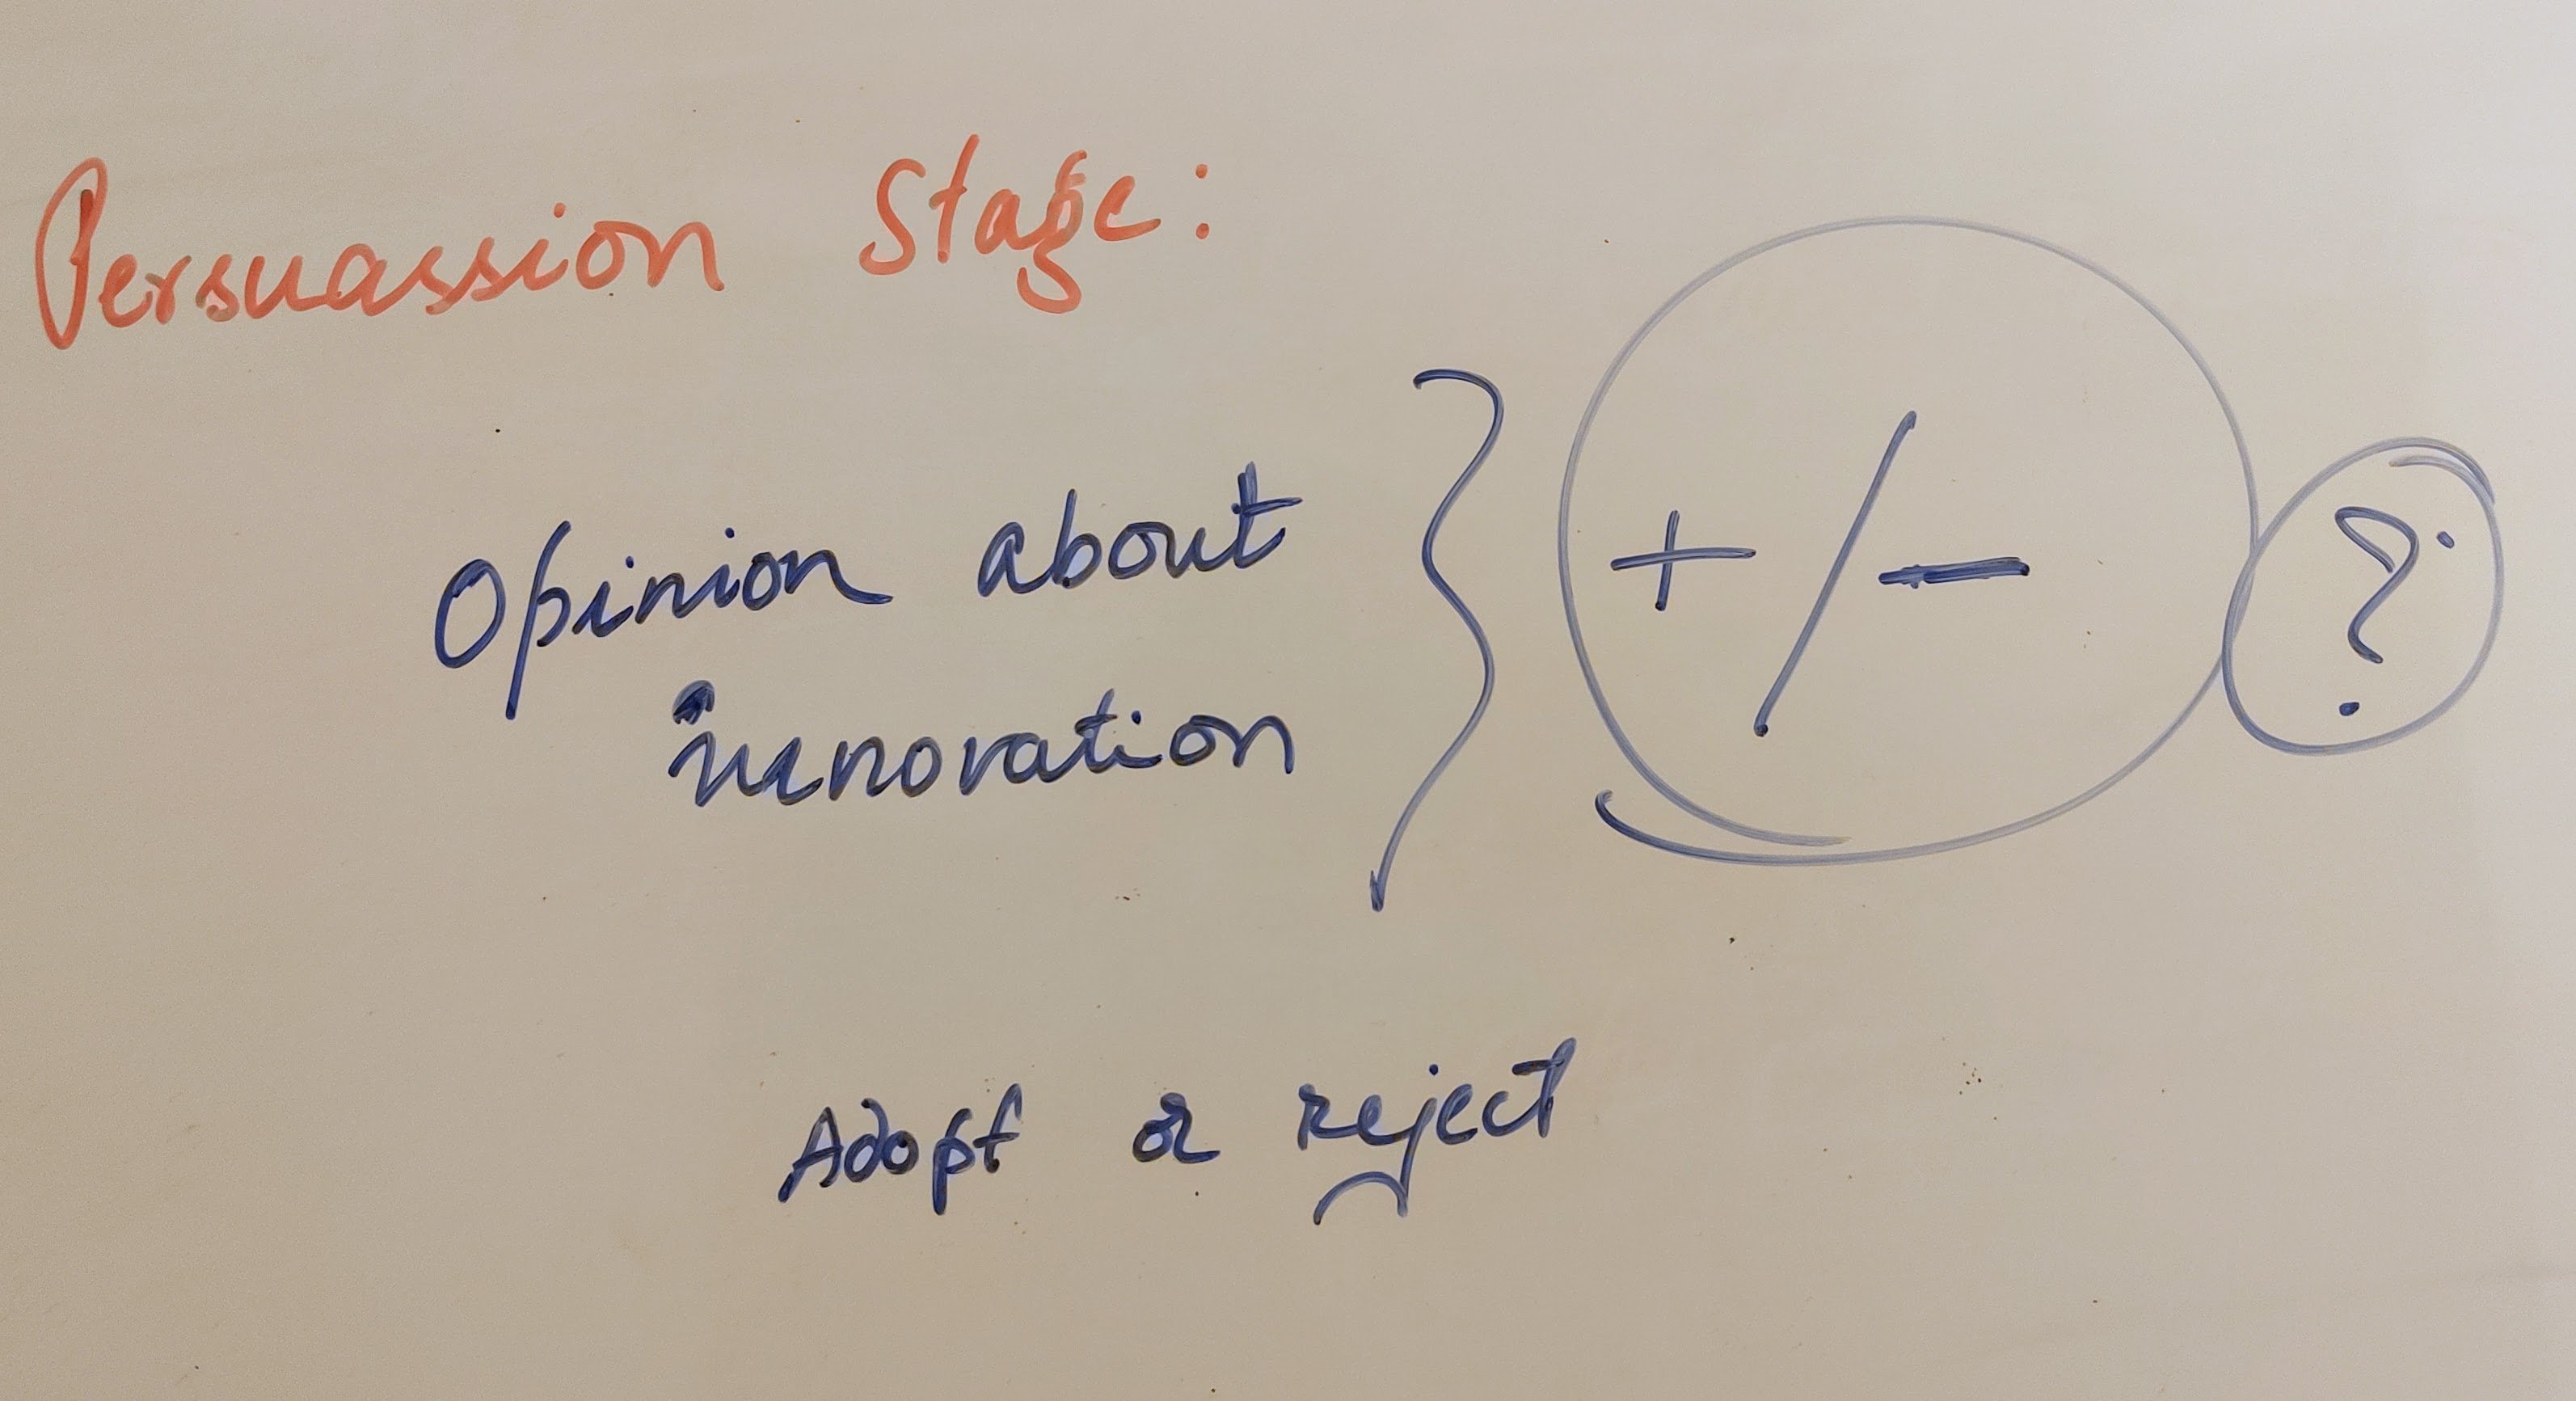 Persuassion Stage:
Opinion about
innovation
+/-
?
Adopt or reject